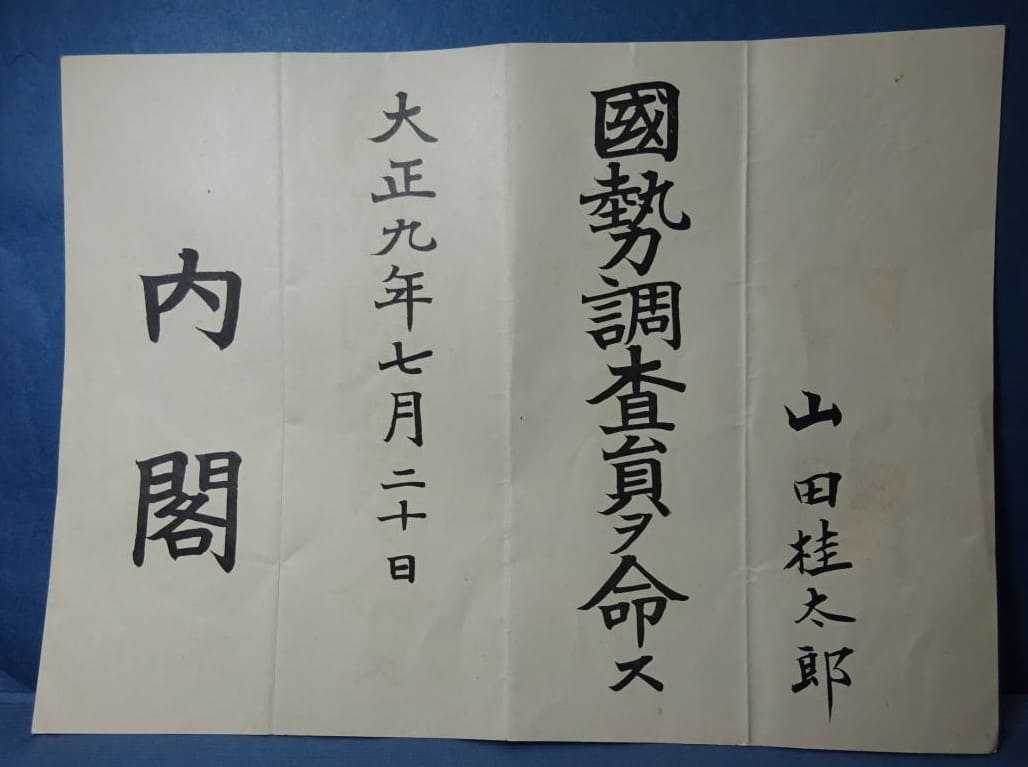 山田桂太郎
國勢調査員ヲ命ス
大正九年七月二十日
内閣